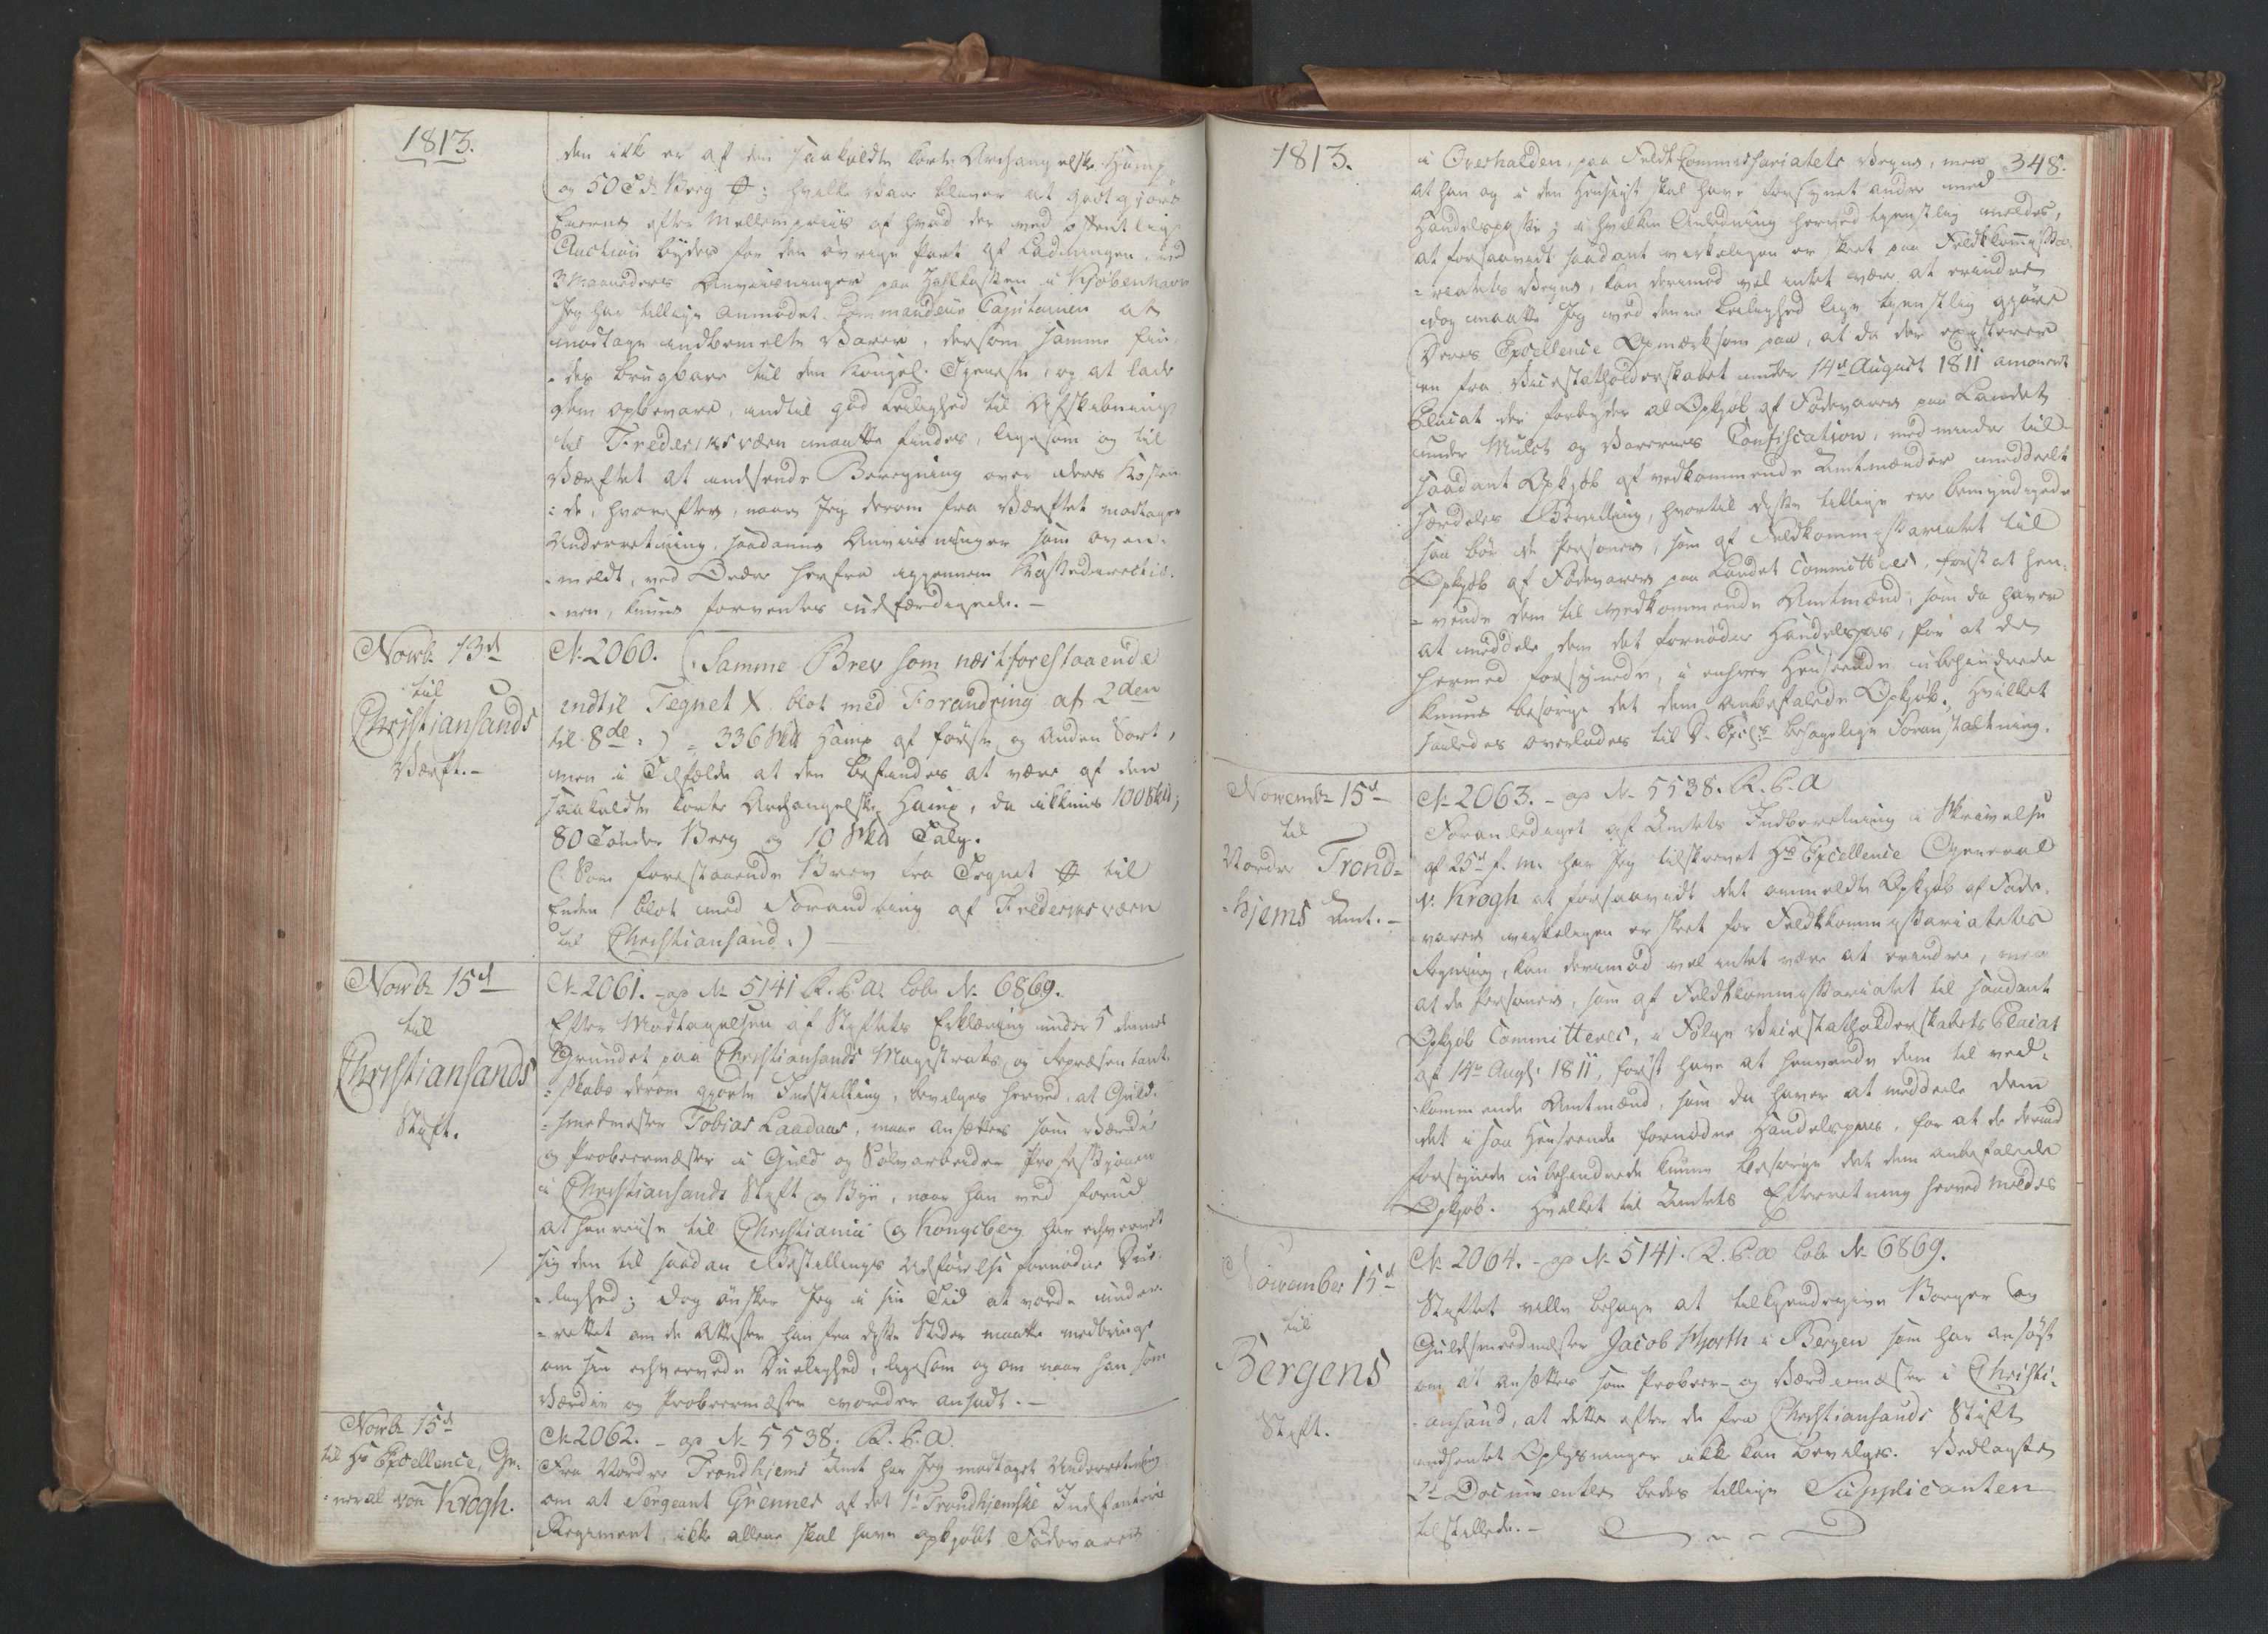 1813.
den ikke er af den saakaldte korte Archangelske Hamp
og 50 Td. Beeg ф; hvilke Vare bliver at godtgjøre
Eierne efter Mellempriis af hvad der ved offentlig
Auction bydes for den øvrige Part af Ladningen, ved
3 Maaneders Anviisninger paa Zahlkassen i Kjøbenhavn
Jeg har tillige anmodet Commandeur Capitainen at
modtage indbemelte Varer, dersom samme fin-
-des brugbare til den Kongel. Tjeneste, og at lade
dem opbevare, indtil god Leilighed til Afskibning
til Frederiksværn maatte findes, ligesom og til
Værftet at indsende Beregning over deres Kosten-
-de, hvorefter, naar Jeg derom fra Værftet modtager
Underretning, saadanne Anviisninger som oven-
-meldt, ved Ordre herfra igjennem Kassedirectio-
-nen, kunne forventes udfærdigede. -
Novb. 13d
til
Christiansands
Værft. -
No 2060. (: Samme Brev som næstforestaaende
indtil Tegnet X. blot med Forandring af 2den
til 8de :) = 336 Skd Hamp af første og anden Sort,
men i Tilfælde at den befindes at være af den
saakaldte korte Archangelske Hamp, da ikkuns 100 Skd;
80 Tønder Beeg og 10 Skd Talg.
(: Som forestaaende Brev fra Tegnet ф til
Enden blot med Forandring af Frideriksværn
til Christiansand :)
Novb. 15d
til
Christiansands
Stift.
No 2061. - ap No 5141 R. C. a. Lob. No 6869.
Efter Modtagelsen af Stiftets Erklæring under 5 dennes
Grundet paa Christiansands Magistrats og Repræsentant-
-skabs derom gjorte Indstilling, bevilges herved, at Guld-
-smedmester Tobias Laadaas, maae ansættes som Værdie
og Probeermester i Guld og Sølvarbeider Professionen
i Christiansands Stift og Bye, naar han ved forud
at henreise til Christiania og Kongsberg har erhvervet
sig den til saadan Bestillings Udførelse fornødne Due-
-lighed; dog ønsker Jeg i sin Tid at vorde under-
-rettet om de Attester han fra disse Steder maatte medbringe
om sin erhvervede Duelighed, ligesom og om naar han som
Værdie og Probeermester vorder ansadt. -
Novb. 15d
til Hs Excellence, Ge-
-neral von Krogh.
No 2062. - ap No 5538. R. C. a.
Fra Nordre Trondhjems Amt har Jeg modtaget Underretning
om at Sergeant Grennes af det 1t Trondhjemske Infanterie
Regiment, ikke allene skal have opkjøbt Fødevarer
1813.
348.
i Overhalden, paa Feldt Commissariatets Vegne, men
at han og i den Hensigt skal have forsynet andre med
Handelspasse; i hvilken Anledning herved tjenstlig meldes,
at forsaavidt saadant virkeligen er skeet paa Feldtkommissa-
-riatets Vegne, kan derimod vel intet være at erindre
dog maatte Jeg ved denne Leilighed lige tjenstlig gjøre
Deres Excellence Opmærksom paa, at da der existerer
en fra Vicestatholderskabet under 14d August 1811 emaneret
Placat der forbyder al Opkjøb af Fødevarer paa Landet
under Mulct og Varernes Confiscation, med mindre til
saadant Opkjøb af vedkommende Amtmænder meddeelt
særdeles Bevilling, hvortil disse tillige ere bemyndigede
saa bør de Personer, som af Feldkommissariatet til
Opkjøb af Fødevarer paa Landet Committeres, først at hen-
-vende dem til vedkommende Amtmænd, som da haver
at meddele dem det fornødne Handelspas, for at de
hermed forsynede, i enhver Henseende ubehindrede
kunne besørge det dem anbefalede Opkjøb. Hvilket
saaledes overlades til D. Exc:s behagelige Foranstaltning.
Novembr 15d
til
Nordre Trond-
-hjems Amt. -
No 2063. - ap No 5538. R. C. a
Foranlediget af Amtets Indberetning i Skrivelse
af 25d f. M. har Jeg tilskrevet Hs Excellence General
v. Krogh at forsaavidt det anmeldte Opkjøb af Føde-
-varer virkeligen er skeet for Feldtkommissariatets
Regning, kan derimod vel intet være at erindre, men
at de Personer, som af Feldtkommissariatet til saadant
Opkjøb Committeres, i Følge Vicestatholderskabets Placat
af 14de Augs. 1811, først have at henvende dem til ved-
-kommende Amtmænd, som da haver at meddeele dem
det i saa Henseende fornødne Handelspas, for at de dermed
forsynede ubehindrede kunne besørge det dem anbefalede
Opkjøb. Hvilket til Amtets Efterretning herved meldes
November 15d
til
Bergens
Stift.
No 2064. - ap No 5141. R. C. a Lob. No 6869.
Stiftet ville behage at tilkjendegive Borger og
Guldsmedmester Jacob Myorth i Bergen som har ansøgt
om at ansættes som Probeer- og Værdiemester i Christi-
-ansand, at dette efter de fra Christiansands Stift
indhentet Oplysninger ikke kan bevilges. Vedlagte
2d Documenter bedes tillige Supplicanten
tilstillede. -